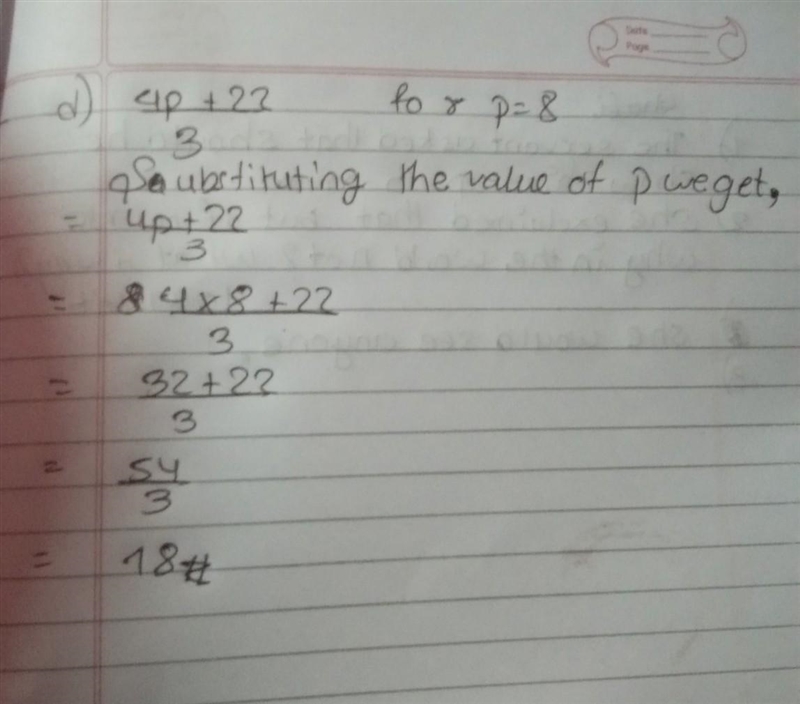 Date
Page
d) 4p+22 for p=8
3
Substituting the value of p we get,
= 4p+22
3
= 4×8+22
3
= 32+22
3
= 54
3
= 18#